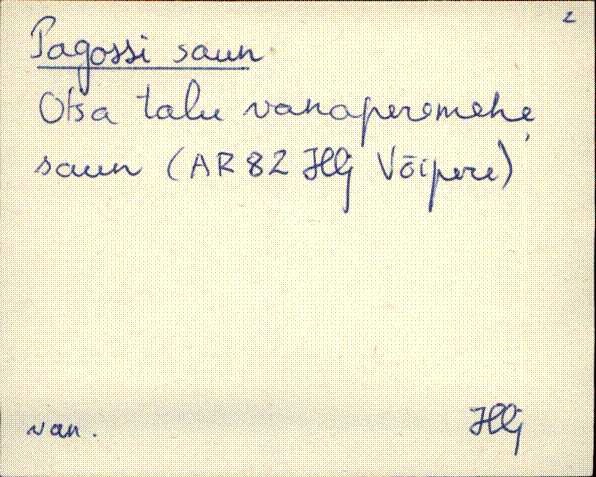 2
Pagossi saun
Otsa talu vanaperemehe
saun (AR 82 Hlj Võipere)
van. Hlj